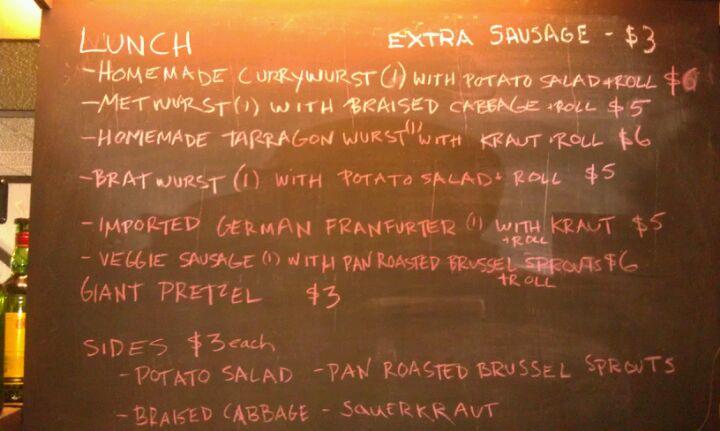 LUNCH EXTRA SAUSAGE - $3
- HOMEMADE CURRYWURST (1) WITH POTATO SALAD + ROLL $6
- METWURST (1) WITH BRAISED CABBAGE + ROLL $5
- HOMEMADE TARRAGON WURST (1) WITH KRAUT + ROLL $6
- BRATWURST (1) WITH POTATO SALAD + ROLL $5
- IMPORTED GERMAN FRANFURTER (1) WITH KRAUT $5
+ ROLL
- VEGGIE SAUSAGE (1) WITH PAN ROASTED BRUSSEL SPROUTS $6
+ ROLL
GIANT PRETZEL $3
SIDES $3 each
- POTATO SALAD - PAN ROASTED BRUSSEL SPROUTS
- BRAISED CABBAGE - SAUERKRAUT